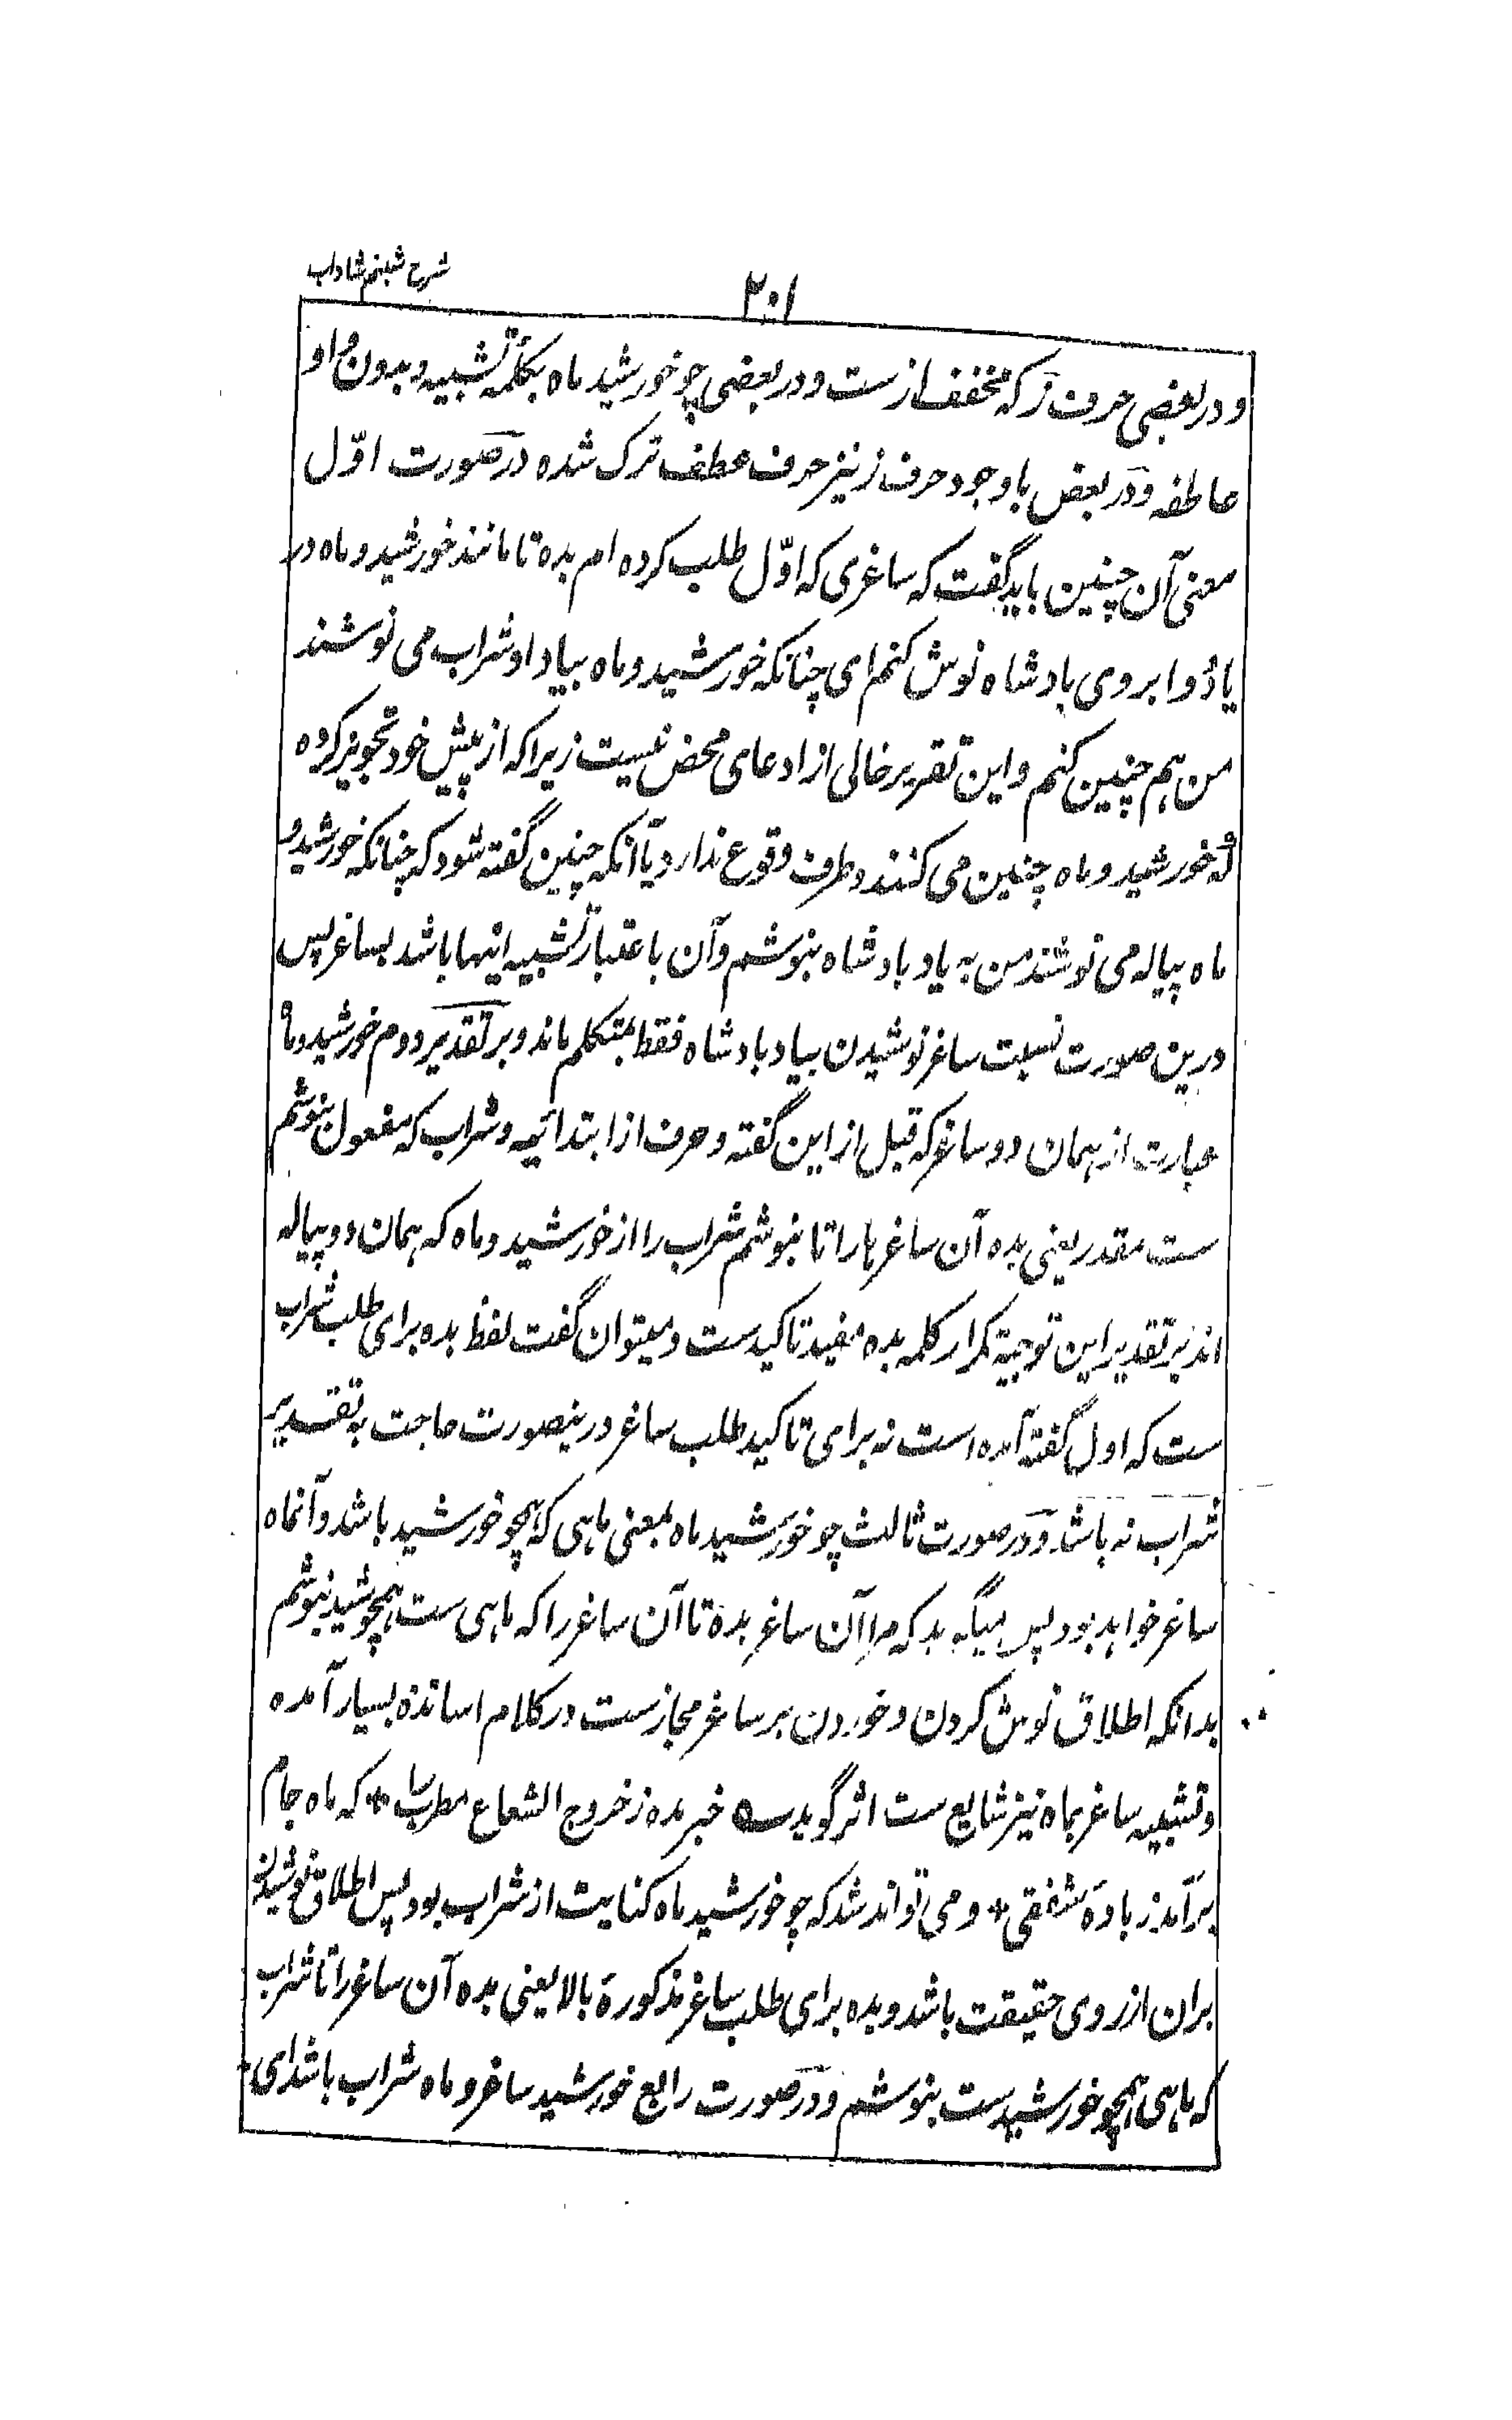 شرح شبنم شاداب
۲۰۱
و در بعضی حرف ز که مخفف از ست و در بعضی چو خورشید ماه بکلمهٔ تشبیه و بدون واو
عاطفه و در بعض با وجود حرف ز نیز حرف عطف ترک شده در صورت اوّل
معنی آن چنین باید گفت که ساغری که اوّل طلب کرده ام بده تا مانند خورشید و ماه در
یاد ابروی بادشاه نوش کنم ای چنانکه خورشید و ماه بیاد او شراب می نوشند
من هم چنین کنم و این تقریر خالی از ادعای محض نیست زیرا که از پیش خود تجویز کرده
که خورشید و ماه چنین می کنند و طرف وقوع ندارد یا آنکه چنین گفته شود که چنانکه خورشید و
ماه پیاله می نوشند من به یاد بادشاه بنوشم و آن باعتبار تشبیه اینها باشد بساغر پس
درین صورت نسبت ساغر نوشیدن بیاد بادشاه فقط بمتکلم ماند و بر تقدیر دوم خورشید و ماه
عبارت از همان دو ساغر که قبل از این گفته و حرف از ابتدائیه و شراب که مفعول بنوشم
ست مقدر یعنی بده آن ساغرها را تا بنوشم شراب را از خورشید و ماه که همان دو پیاله
اند بر تقدیر این توجیه تکرار کلمه بده مفید تاکید ست و میتوان گفت لفظ بده برای طلب شراب
ست که اول گفته آمده است نه برای تاکید طلب ساغر درینصورت حاجت به تقدیر
شراب نه باشد و در صورت ثالث چو خورشید ماه بمعنی ماهی که همچو خورشید باشد و آنماه
ساغر خواهد بود پس میگوید که مرا آن ساغر بده تا آن ساغر را که ماهی ست همچو شید بنوشم
بدانکه اطلاق نوش کردن و خوردن بر ساغر مجازست در کلام اساتذه بسیار آمده
و تشبیه ساغر بماه نیز شایع ست اثر گوید ؎ خبر بده ز خروج الشعاع مطرب را * که ماه جام
برآمد ز بادهٔ شفقی * و می تواند شد که چو خورشید ماه کنایت از شراب بود پس اطلاق نوشیدن
بران از روی حقیقت باشد و بده برای طلب ساغر مذکورهٔ بالا یعنی بده آن ساغر را تا شراب
که ماهی همچو خورشید ست بنوشم و در صورت رابع خورشید ساغر و ماه شراب باشد ای